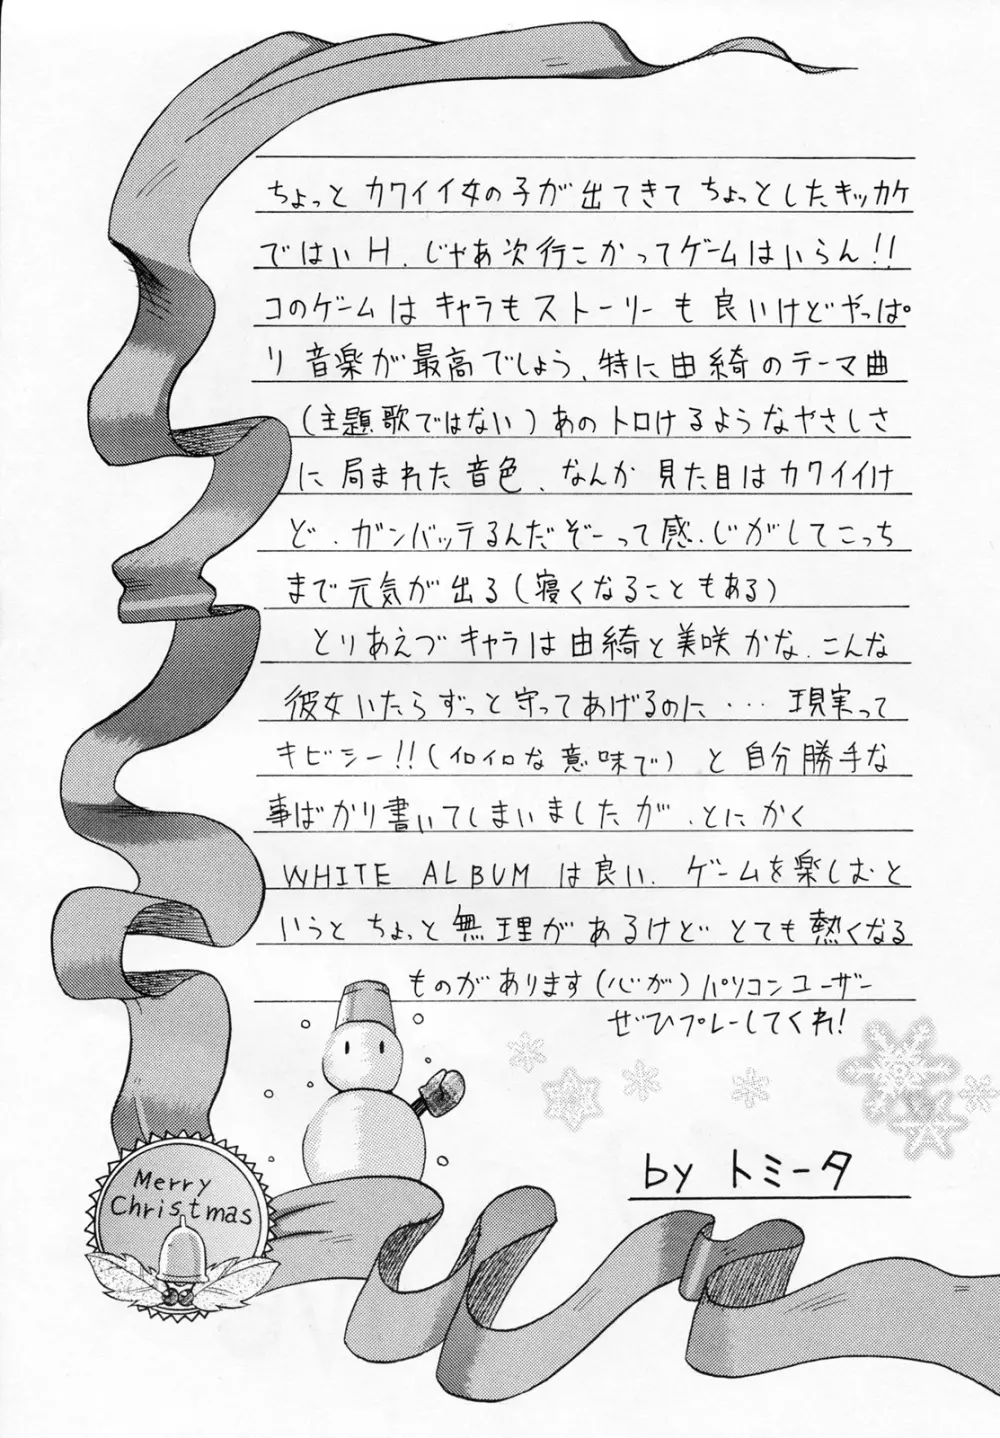 ちょっとカワイイ女の子が出てきてちょっとしたキッカケ
ではいH、じゃあ次行こかってゲームはいらん!!
コのゲームはキャラもストーリーも良いけどやっぱ
り音楽が最高でしょう、特に由綺のテーマ曲
(主題歌ではない)あのトロけるようなやさしさ
に局まれた音色、なんか見た目はカワイイけ
ど、ガンバッテるんだぞーって感じがしてこっち
まで元気が出る(寝くなることもある)
とりあえづキャラは由綺と美咲かな、こんな
彼女いたらずっと守ってあげるのに・・・現実って
キビシー!!(イロイロな意味で)と自分勝手な
事ばかり書いてしまいましたが、とにかく
WHITE ALBUMは良い、ゲームを楽しむと
いうとちょっと無理があるけどとても熱くなる
ものがあります(心が)パソコンユーザー
ぜひプレーしてくれ!
by トミータ
Merry
Christmas